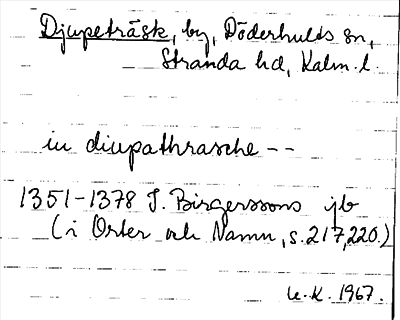 Djupeträsk, by, Döderhults sn,
Stranda hd, Kalm. l.
in diupathrasche --
1351-1378 J. Birgerssons jb
(i Orter och Namn, s. 217, 220.)
U.K. 1967.